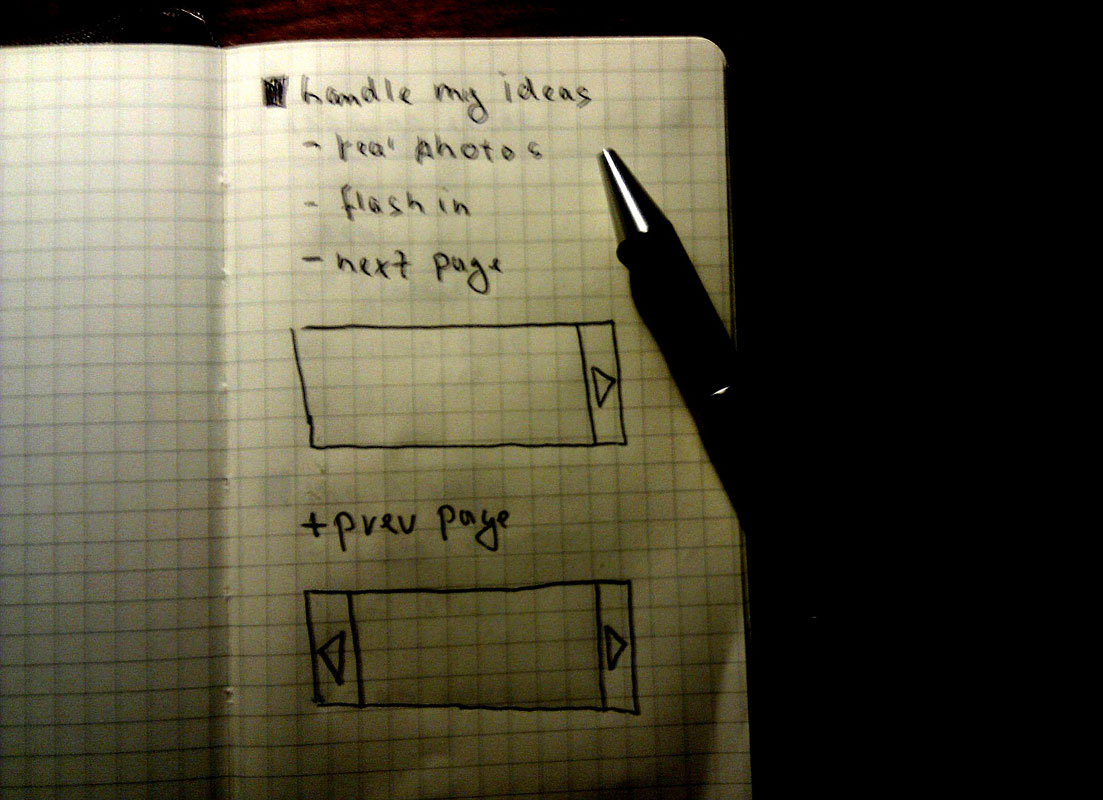 handle my ideas
- real photos
- flash in
- next page
+ prev page